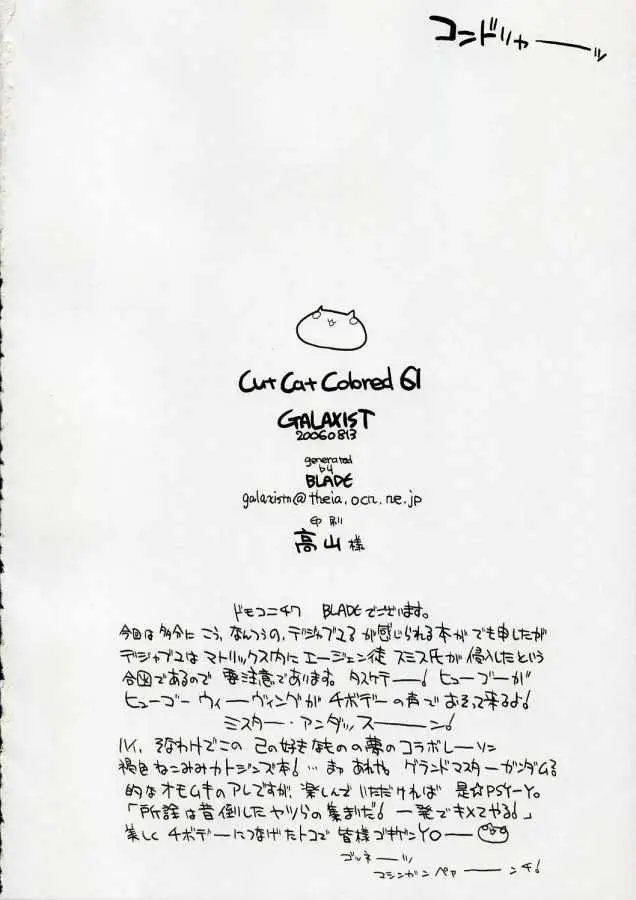 コンドリャーーッ
Cut Cat Colored 61
GALAXIST
20060813
generated
by
BLADE
galaxistn@theia.ocn.ne.jp
印刷
高山 様
ドモコニチワ BLADEでございます。
今回は多分に こう、なんつうの、デジャブユる が感じられる本が でも申したが
デジャブユは マトリックス内に エージェン徒 スミス氏が 侵入したという
合図であるので 要注意であります。タスケテー! ヒューゴーが
ヒューゴー ウィーヴィングが チボデーの声で おそって来るよ!
ミスター・アンダッスーーン!
そなわけでこの 己の好きなものの夢のコラボレーソン
褐色ねこみみカトジンズ本! … まァ あれや。 グランドマスターガンダムる
的なオモムキのアレですが、楽しんでいただければ 是☆PSY-Y。
「所詮は昔倒したヤツらの集まりだ! 一発でキメてやる!」
美しく チボデーにつなげたトコで 皆様ゴキゲンYOーー
ゴルネーーッ
マシンガン ペァーーンチ!